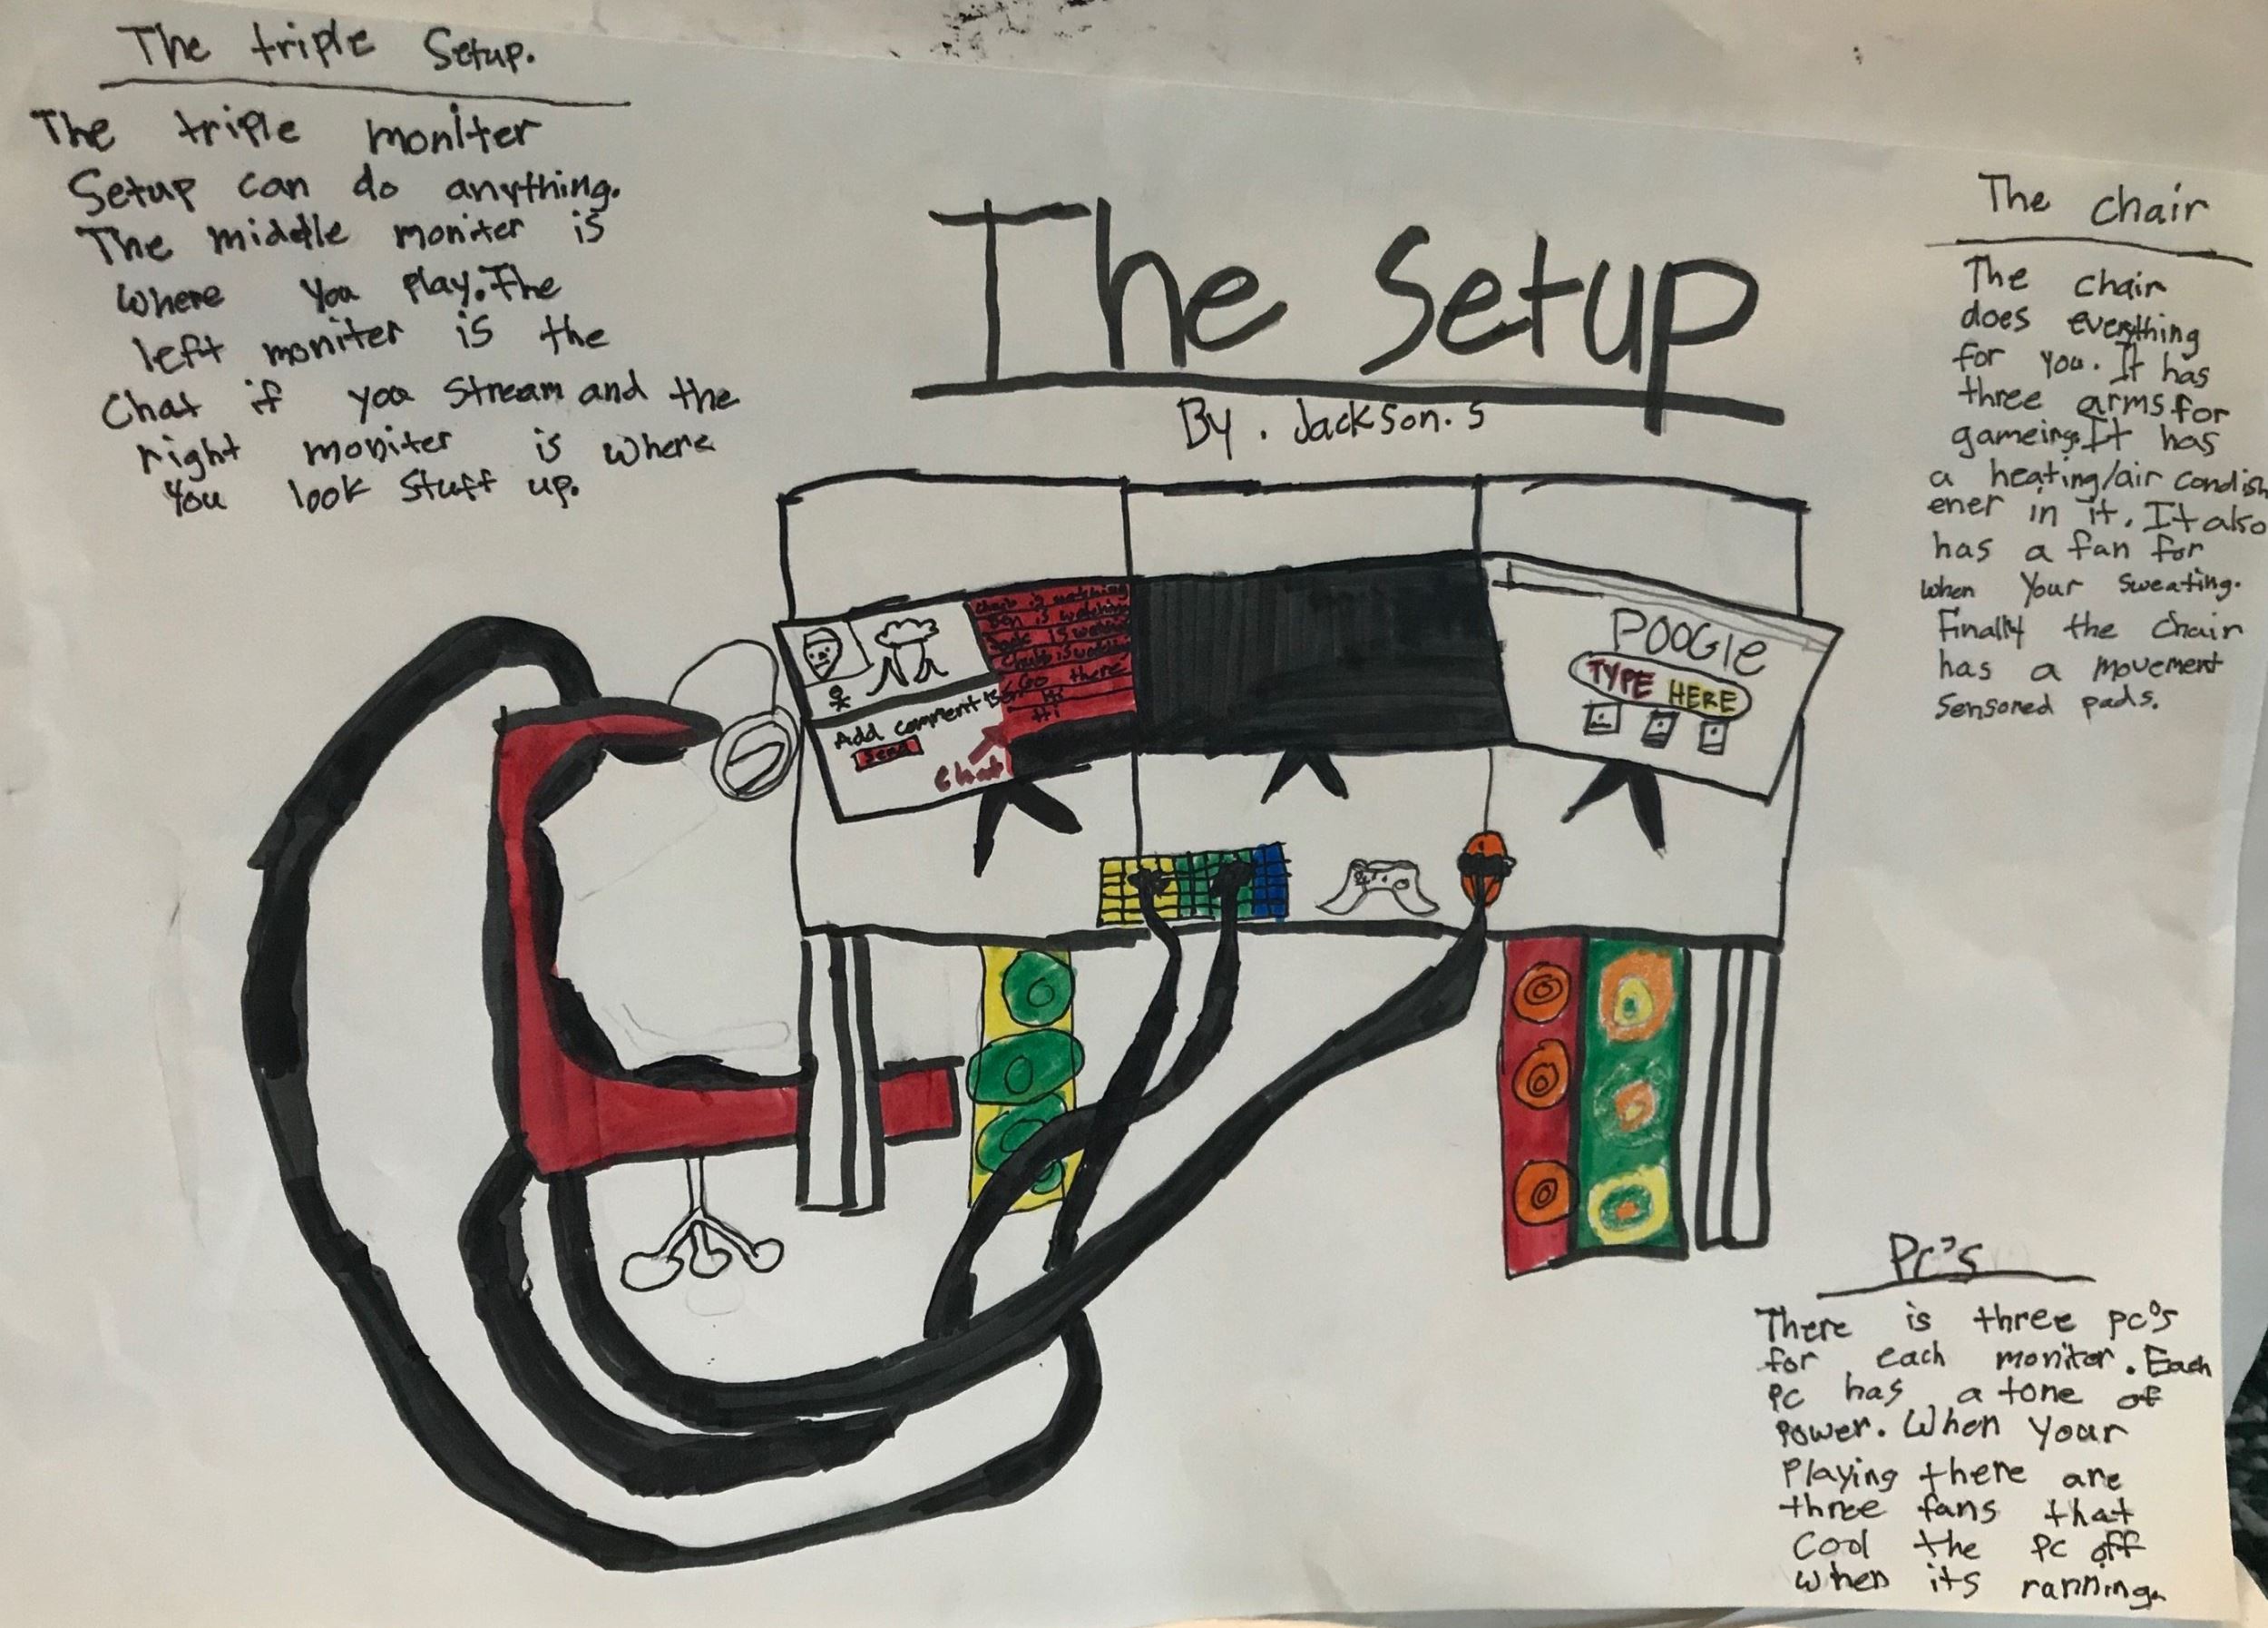 The triple Setup.
The triple moniter
Setup can do anything.
The middle moniter is
where you play. The
left moniter is the
Chat if you Stream and the
right moniter is where
You look Stuff up.
The Setup
By. Jackson. S
The chair
The chair
does everything
for you. It has
three arms for
gameing. It has
a heating/air condish
ener in it. It also
has a fan for
when your sweating.
Finally the chair
has a movement
Sensored pads.
is watching
Ben is watching
is watching
is watching
Go there
Hi
Hi
Add comment
Send
Chat
POOGIE
TYPE HERE
Pc's
There is three pc's
for each monitor. Each
pc has a tone of
power. When your
Playing there are
three fans that
Cool the pc off
when its running.